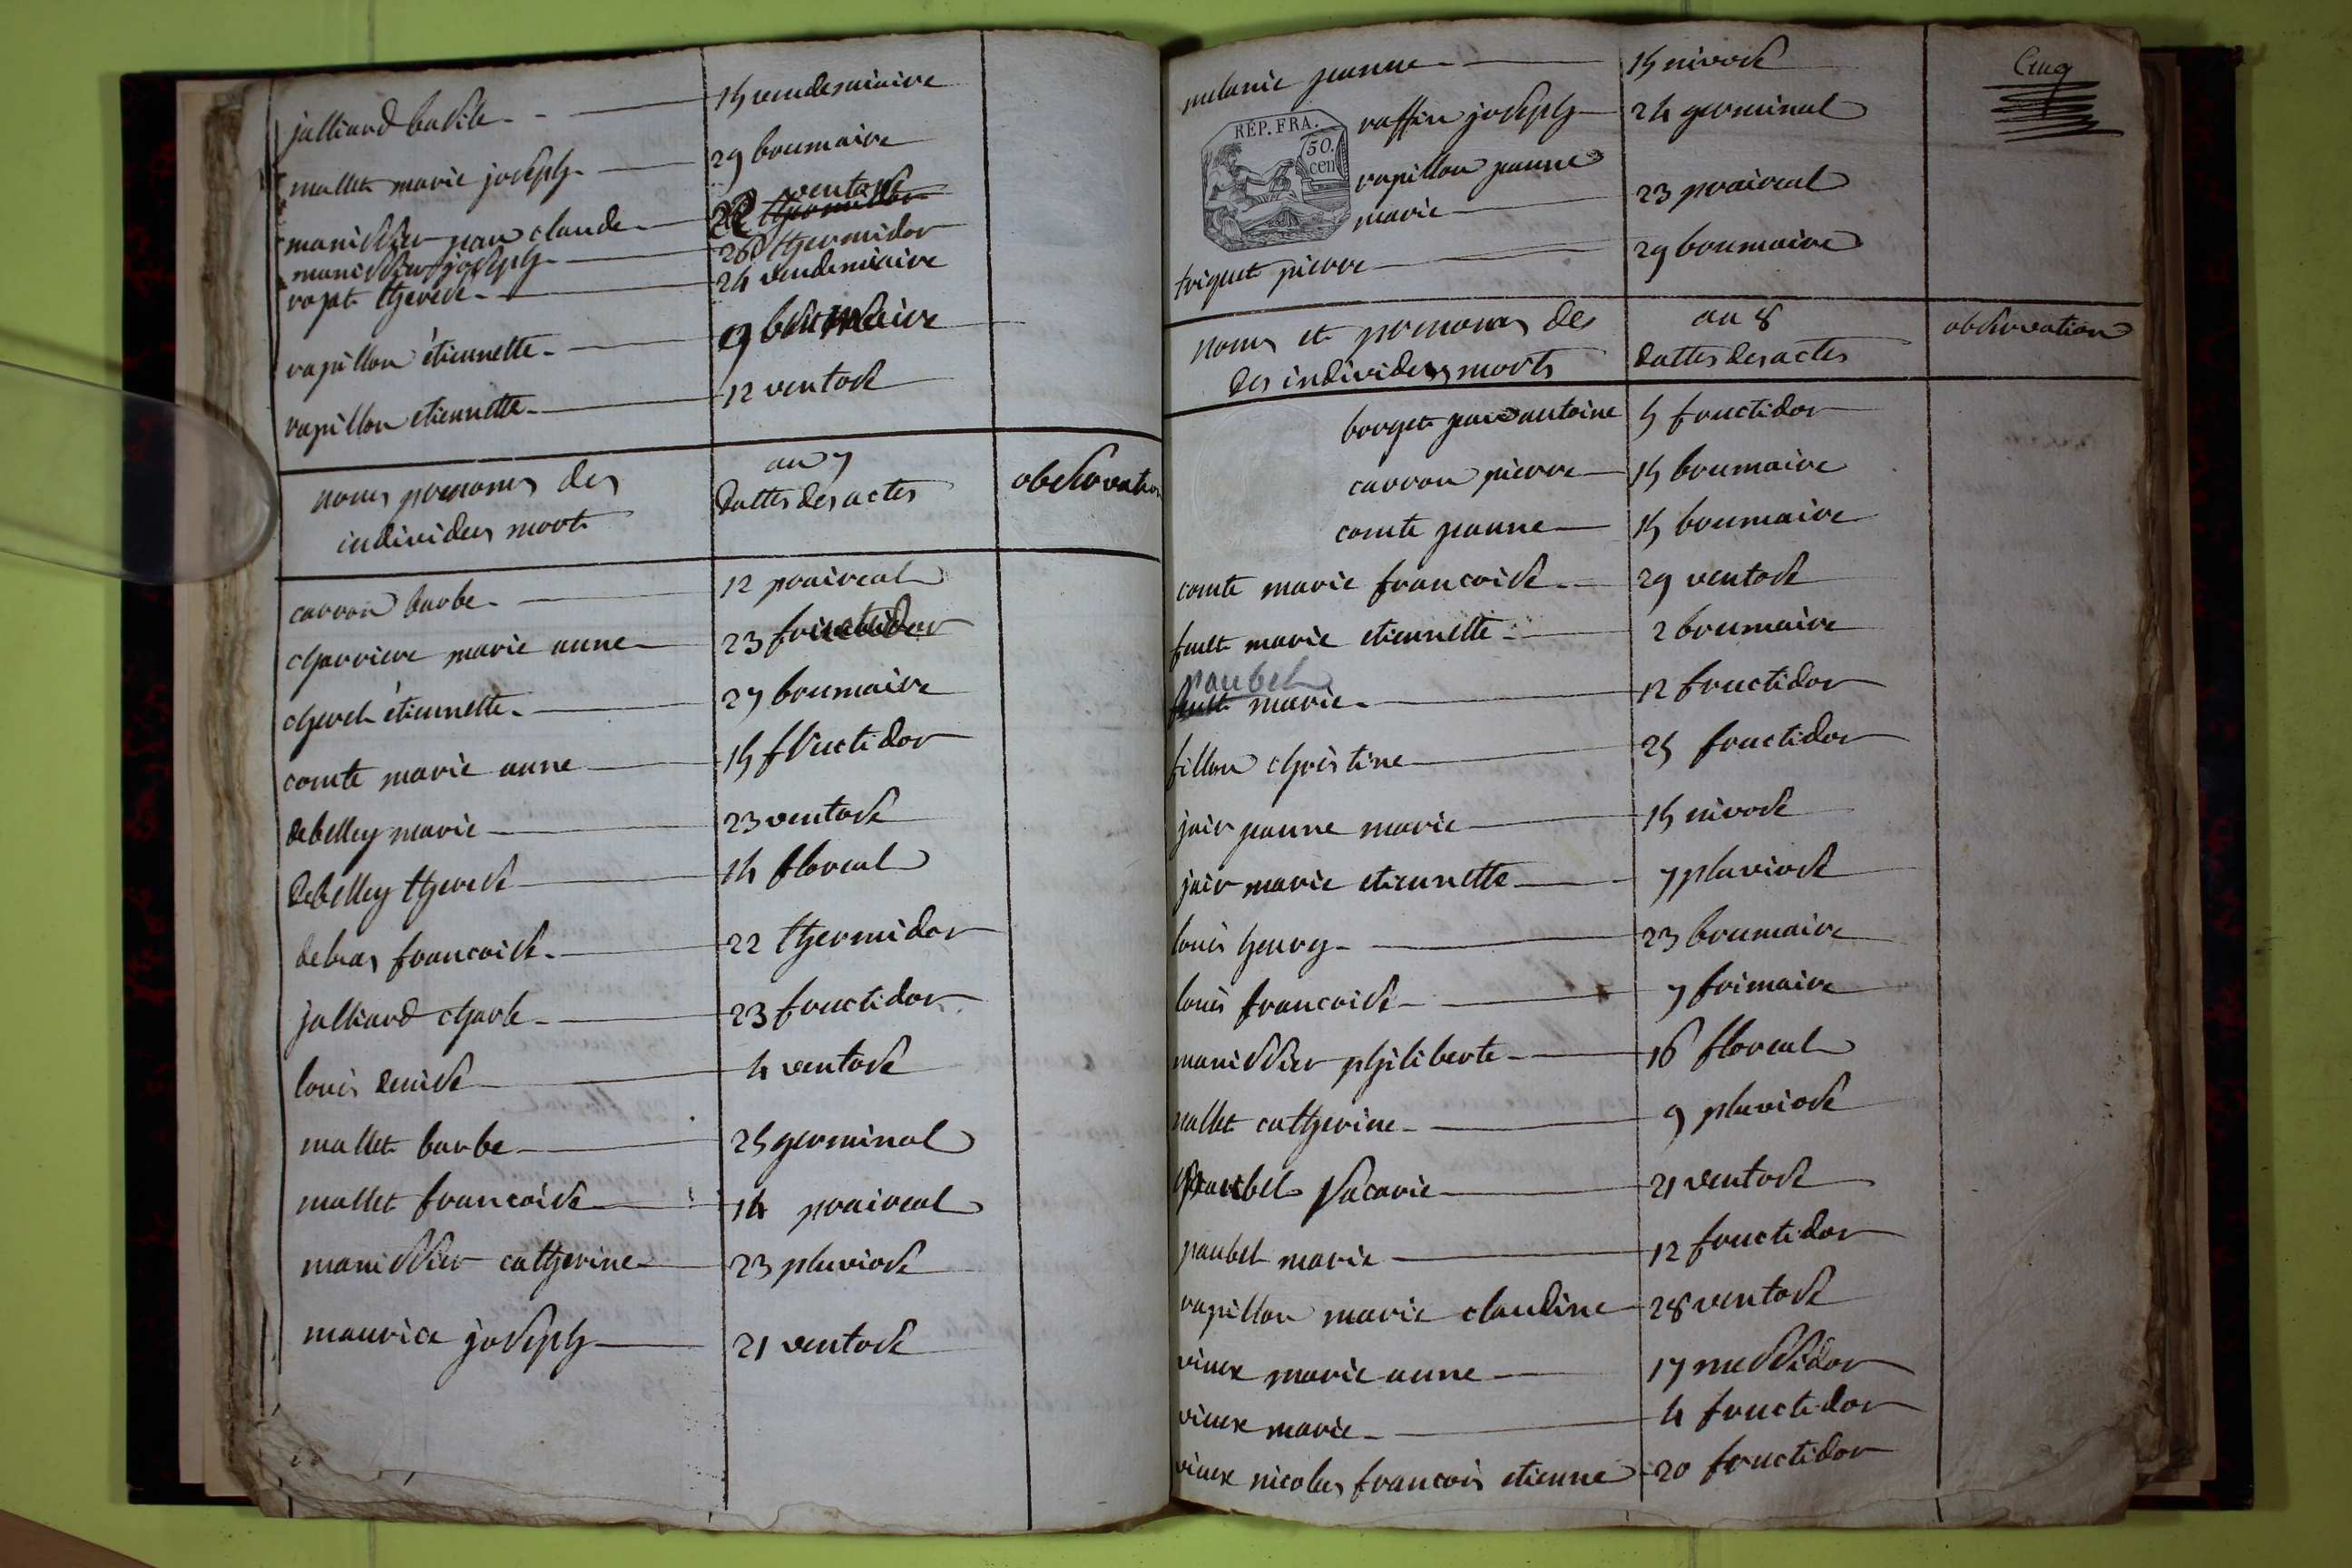 jalliard basile 15 vendemiaire
mallet marie joseph 29 brumaire
manissier jean claude 22 ventose thermidor
manissier joseph 26 thermidor
rapt therese 24 vendemiaire
rapillon étiennette 9 brumaire
rapillon etiennette 12 ventose
noms prenoms des
individus morts
an 7
dattes des actes
observation
carron barbe 12 praireal
charriere marie anne 23 fructidor
chevel étiennette 27 brumaire
comte marie anne 15 fructidor
debelley marie 23 ventose
debelley therese 14 floreal
debras francoise 22 thermidor
jalliard charle 23 fructidor
louis denise 4 ventose
mallet barbe 25 germinal
mallet francoise 14 praireal
manissier catherine 23 pluviose
maurice joseph 21 ventose
melanie jeanne 15 nivose
Cinq
RÉP. FRA.
50.
cen
raffin joseph 24 germinal
rapillon jeanne
marie 23 praireal
triquet pierre 29 brumaire
noms et prenoms des
des individus morts
an 8
dattes des actes
observation
borget jean antoine 5 fructidor
carron pierre 15 brumaire
comte jeanne 15 brumaire
comte marie francoise 29 ventose
fault marie etiennette 2 brumaire
paubel
marie 12 fructidor
fillon christine 25 fructidor
jair jeanne marie 15 nivose
jair marie etiennette 7 pluviose
louis henry 23 brumaire
louis francoise 7 frimaire
manissier philiberte 16 floreal
mallet catherine 9 pluviose
paubel 21 ventose
paubel marie 12 fructidor
rapillon marie claudine 28 ventose
vieux marie anne 17 messidor
vieux marie 4 fructidor
vieux nicolas francois etienne 20 fructidor